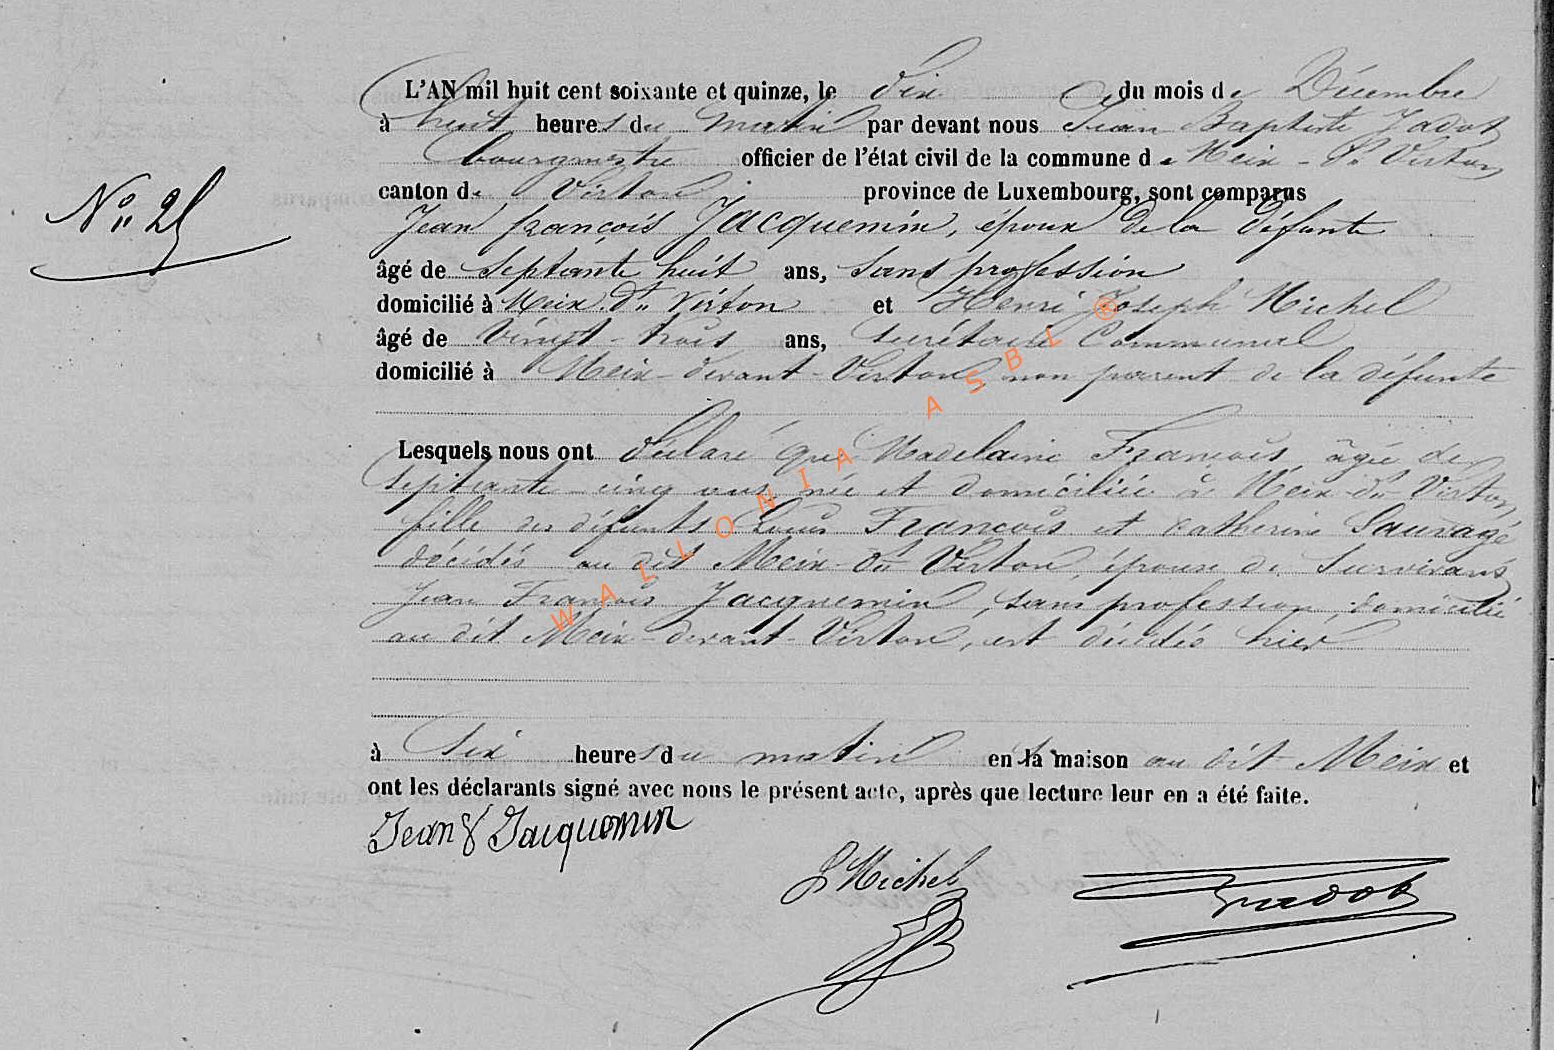 L'AN mil huit cent soixante et quinze, le dix du mois de Décembre
à huit heures du matin par devant nous Jean Baptiste Jadot
bourgmestre officier de l'état civil de la commune de Meix-dt Virton
N° 25
canton de Virton province de Luxembourg, sont comparus
Jean françois Jacquemin, époux de la défunte
âgé de septante huit ans, sans profession
domicilié à Meix dt Virton et Henri Joseph Michel
âgé de vingt-trois ans, secrétaire Communal
domicilié à Meix-devant-Virton non parent de la défunte
Lesquels nous ont déclaré que Madelaine François âgée de
septante-cinq ans, née et domiciliée à Meix-dt-Virton,
fille des défunts Louis François et catherine Sauvage
décédés au dit Meix-dt Virton, épouse de Survivant
Jean François Jacquemin, sans profession, domicilié
au dit Meix-devant-Virton, est décédés hier
à six heures du matin en sa maison au dit Meix et
ont les déclarants signé avec nous le présent acte, après que lecture leur en a été faite.
Jean f Jacquemin
Michel
Jadot
WALLONIA ASBL ®